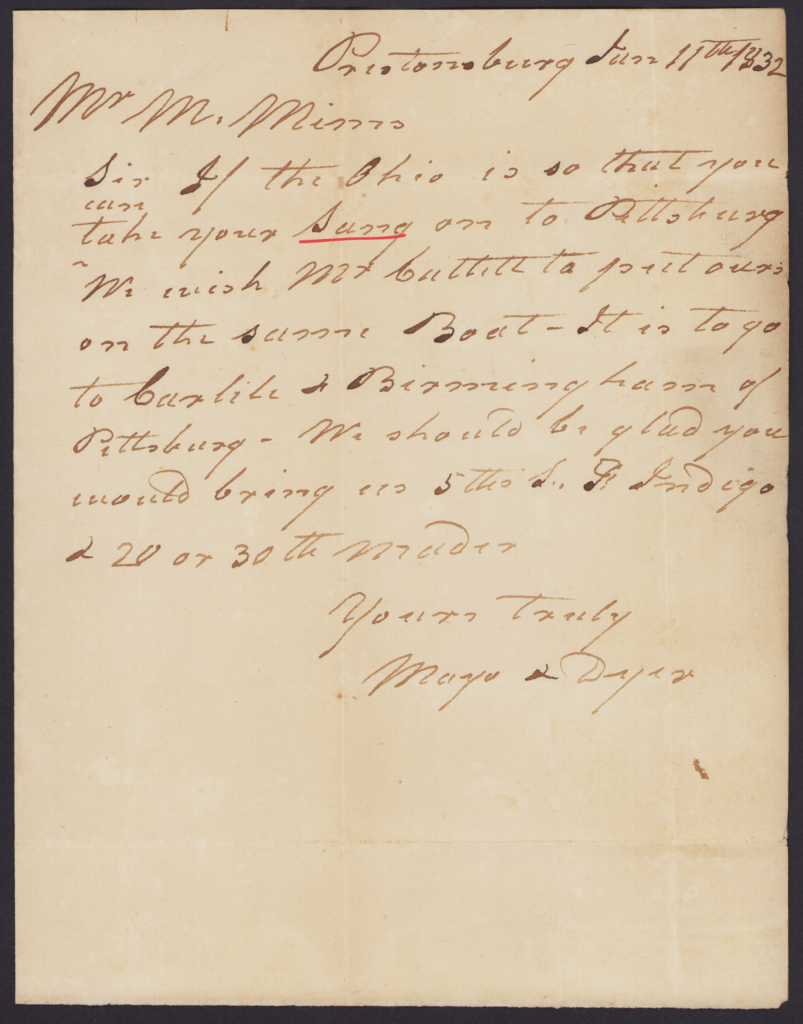 Prestonsburg Jan 11th 1832
Mr M. Mims
Sir If the Ohio is so that you
can
take your Sang on to Pittsburg
We wish Mr Catlett to put ours
on the same Boat - It is to go
to Carlile & Birmingham of
Pittsburg - We should be glad you
would bring us 5 lbs S. F Indigo
& 20 or 30 lb Mader
Yours Truly
Mayo & Dyer